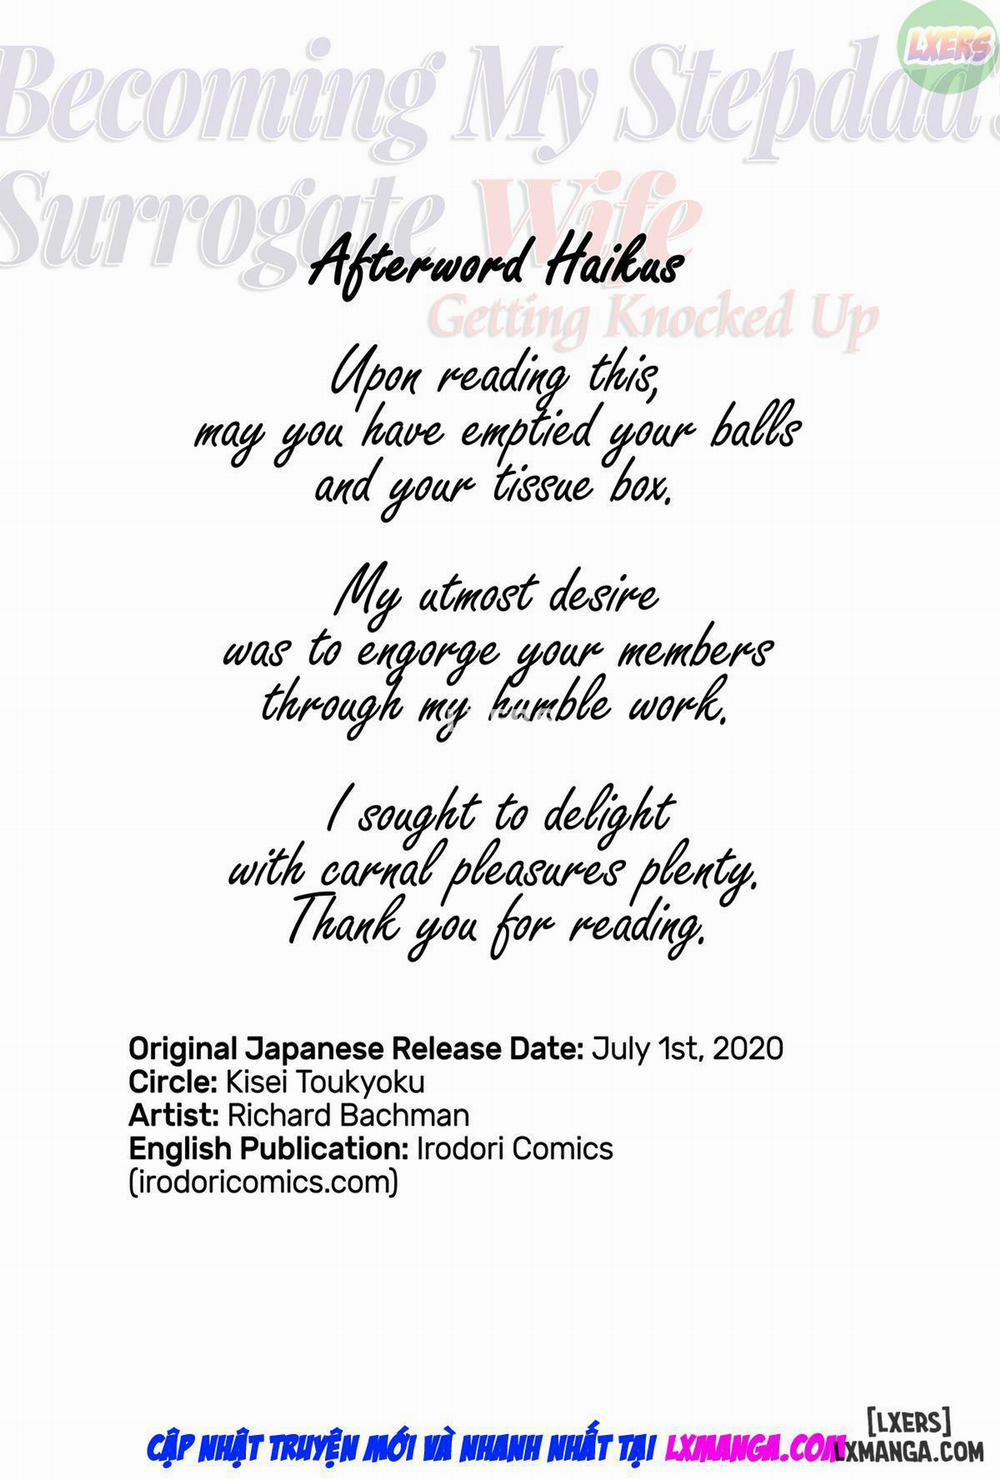 LXERS
Becoming My Stepdad's
Surrogate Wife
Getting Knocked Up
Afterword Haikus
Upon reading this,
may you have emptied your balls
and your tissue box.
My utmost desire
was to engorge your members
through my humble work.
I sought to delight
with carnal pleasures plenty.
Thank you for reading.
Original Japanese Release Date: July 1st, 2020
Circle: Kisei Toukyoku
Artist: Richard Bachman
English Publication: Irodori Comics
(irodoricomics.com)
[LXERS]
CẬP NHẬT TRUYỆN MỚI VÀ NHANH NHẤT TẠI LXMANGA.COM
LXMANGA.COM